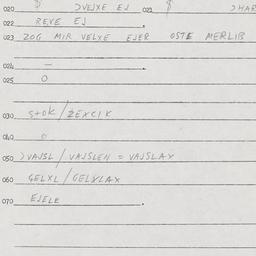 020 $ ƆVEJXE EJ 021 $ ƆHAR
022 REVE EJ
023 ZOG MIR VELXE EJER OSTE MERLIB
024 —
025 O
030 S+OK / ZEXCIK
040 O
050 ƆVAJSL / VAJSLEN = VAJSLAX
060 GELXL / GELXLAX
070 EJELE